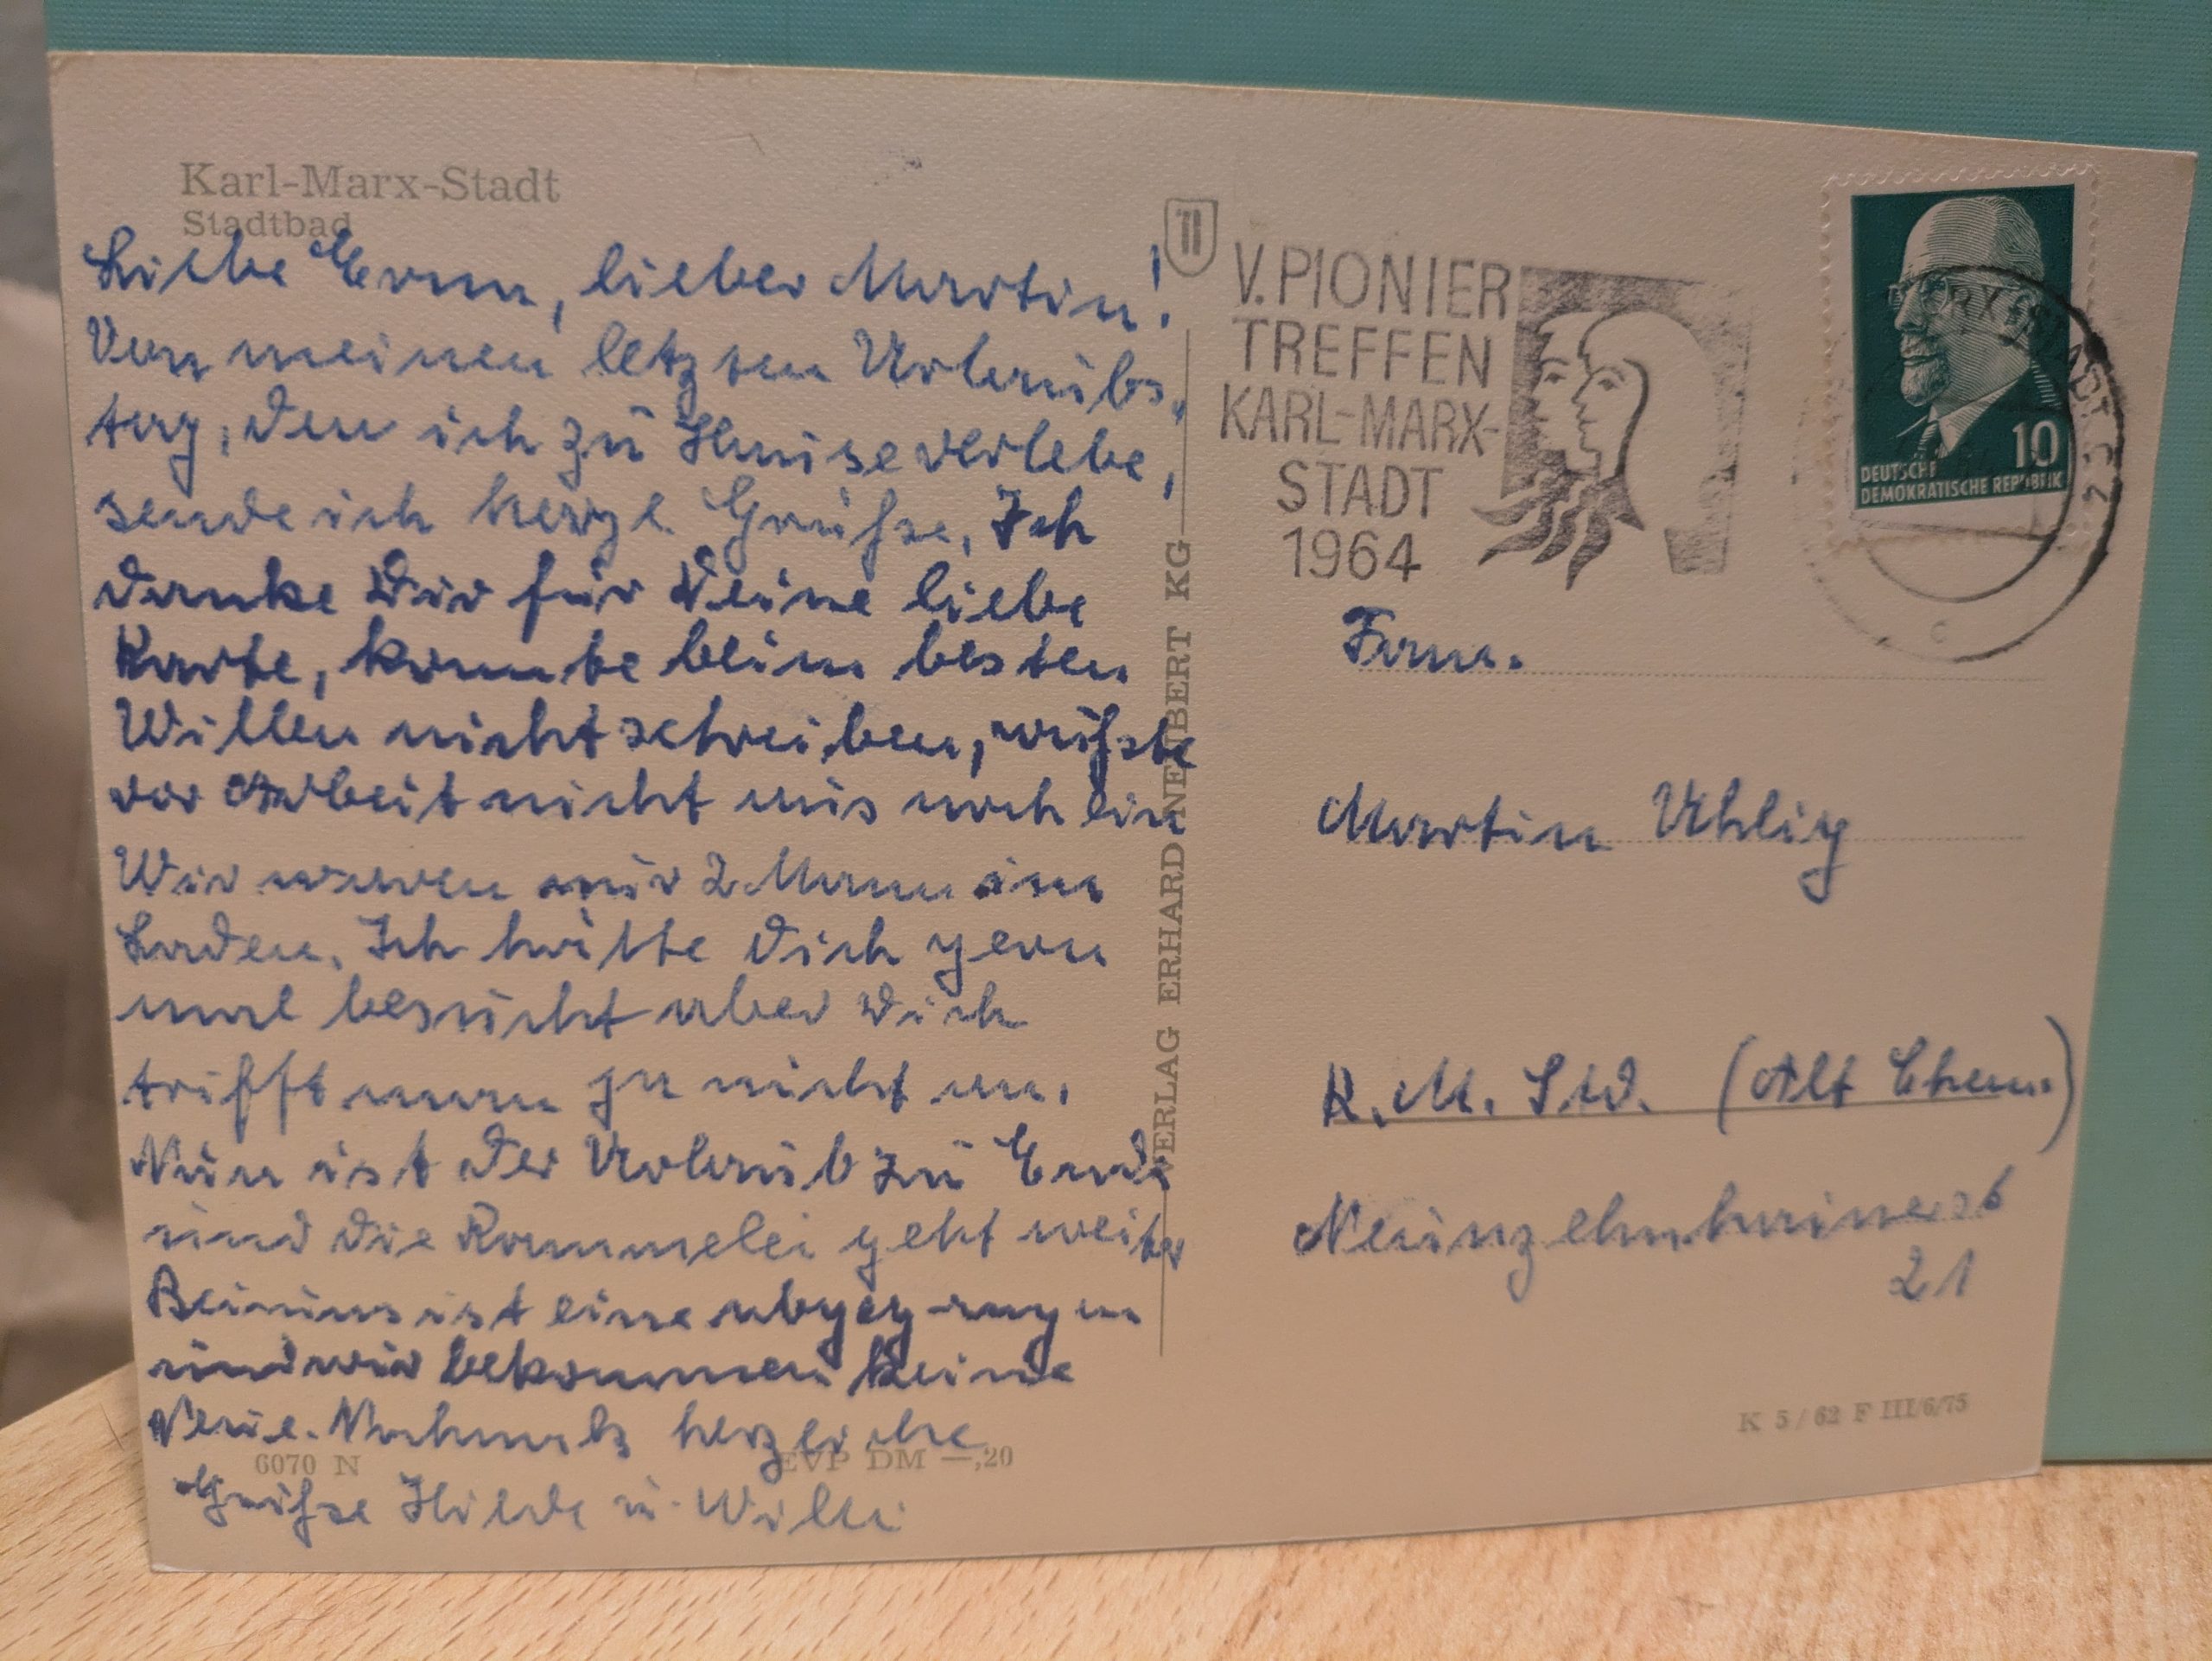 Karl-Marx-Stadt
Stadtbad
Liebe Erna, lieber Martin!
Von meinen letzten Urlaubs-
tag, den ich zu Hause verlebe,
sende ich herzl. Grüße. Ich
danke Dir für Deine liebe
Karte, konnte beim besten
Willen nicht schreiben, wußte
vor Arbeit nicht aus noch ein
Wir waren nur 2 Mann im
Laden. Ich hätte Dich gern
mal besucht aber Dich
trifft man ja nicht an.
Nun ist der Urlaub zu Ende
und die Rammelei geht weiter
Bei uns ist eine abgegangen
und wir bekommen keine
Neue. Nochmals herzliche
Grüße Hilde u. Willi
6070 N
EVP DM —,20
VERLAG ERHARD NEUBERT KG
V. PIONIER
TREFFEN
KARL-MARX-
STADT
1964
10
DEUTSCHE
DEMOKRATISCHE REPUBLIK
Fam.
Martin Uhlig
K. M. Std. (Alt Chem.)
Neunzehnhainerst
21
K 5/62 F III/6/75